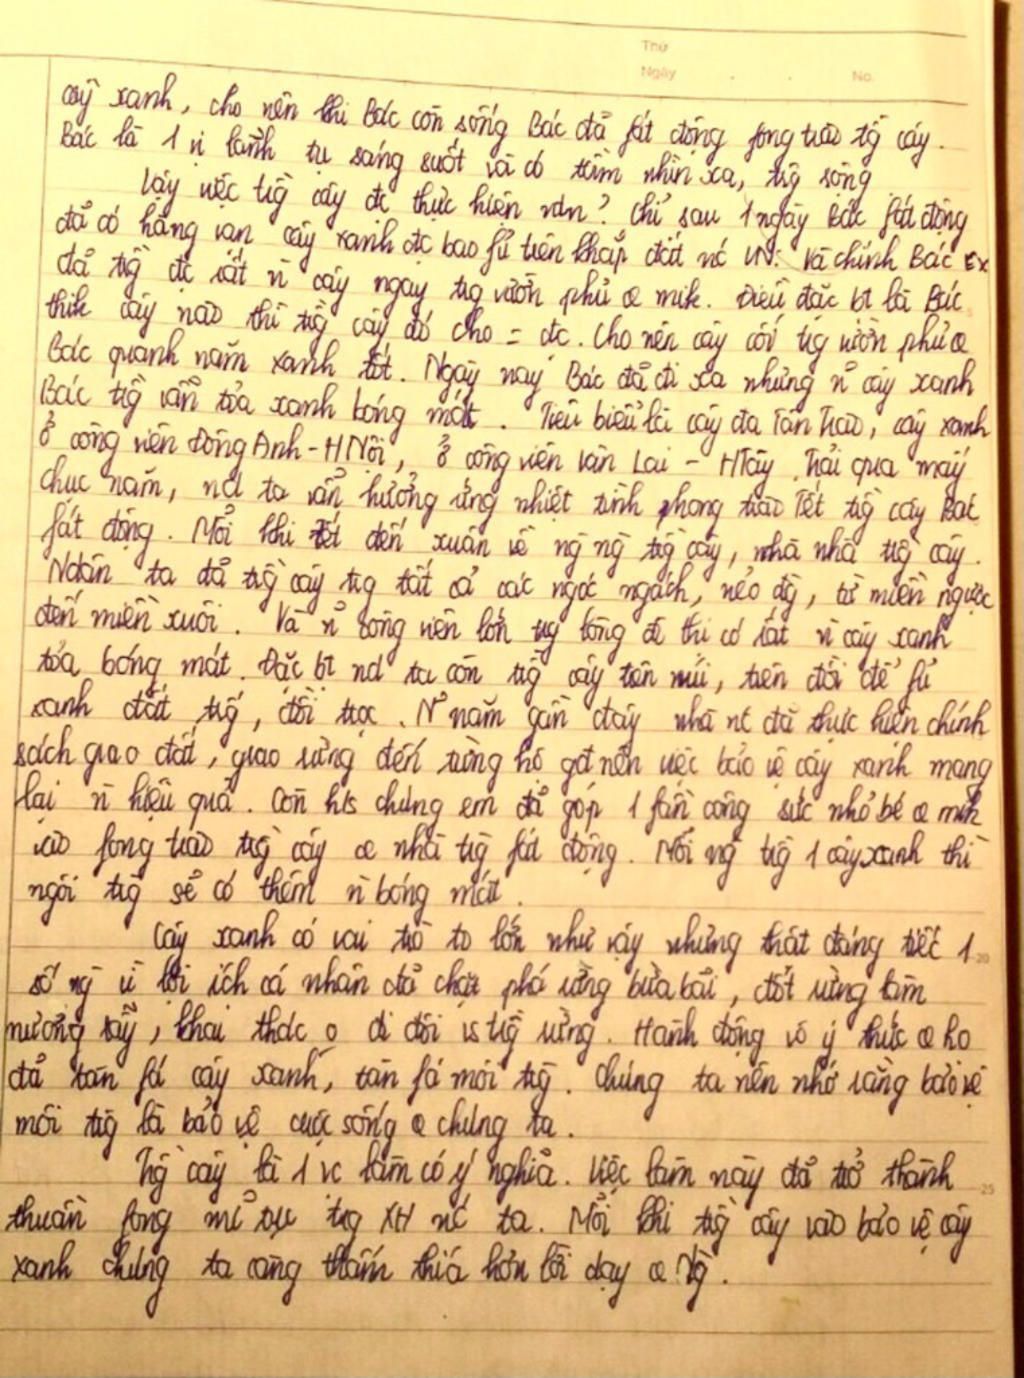 Thứ
Ngày . . No.
cây xanh, cho nên khi Bác còn sống Bác đã fát động fong trào tg̀ cây.
Bác là 1 vị lãnh tụ sáng suốt và có tầm nhìn xa, trg sộng
Vậy việc trg̀ cây đc thực hiện ntn? Chỉ sau 1 ngày Bác fát động
đã có hàng vạn cây xanh đc bao fủ trên khắp đất nc VN. Và chính Bác
đã trg̀ đc rất ǹ cây ngay trg vườn phủ ө mik. Điều đặc bt là Bác
thik cây nào thì trg̀ cây đó cho = đc. Cho nên cây cối trg vườn phủ ө
Bác quanh năm xanh tốt. Ngày nay Bác đã đi xa nhưng n~ cây xanh
Bác trg̀ vẫn tỏa xanh bóng mát. Tiêu biểu là cây đa Tân Trào, cây xanh
ở công viên Đông Anh - HNội, ở công viên Vân Lai - HTây. Trải qua mấy
chục năm, nd ta vẫn hưởng ứng nhiệt tình phong trào Tết trg̀ cây Bác
fát động. Mỗi khi tết đến xuân về ng ng trg̀ cây, nhà nhà trg̀ cây.
Ndân ta đã trg̀ cây trg tất cả các ngóc ngách, nẻo đg, từ miền ngược
đến miền xuôi. Và n~ công viên lớn trg lòng đô thị có rất ǹ cây xanh
tỏa bóng mát. Đặc bt nd ta còn trg̀ cây trên núi, trên đồi để fủ
xanh đất trg', đồi trọc. N~ năm gần đây nhà nc đã thực hiện chính
sách giao đất, giao rừng đến từng hộ gđ nên việc bảo vệ cây xanh mang
lại ǹ hiệu quả. Còn h/s chúng em đã góp 1 fần công sức nhỏ bé ө mik
vào fong trào trg̀ cây ө nhà trg fát động. Mỗi ng trg̀ 1 cây xanh thì
ngôi trg sẽ có thêm ǹ bóng mát.
Cây xanh có vai trò to lớn như vậy nhưng thật đáng tiếc 1
số ng vì lợi ích cá nhân đã chặt phá rừng bừa bãi, đốt rừng làm
nương rẫy, khai thác o đi đôi vs trg̀ rừng. Hành động vô ý thức ө họ
đã tàn fá cây xanh, tàn fá môi trg. Chúng ta nên nhớ rằng bảo vệ
môi trg là bảo vệ cuộc sống ө chúng ta.
Trg̀ cây là 1 vc làm có ý nghĩa. Việc làm này đã trở thành
thuần fong mĩ tục trg XH nc ta. Mỗi khi trg̀ cây vào bảo vệ cây
xanh chúng ta càng thấm thía hơn lời dạy ө Ng.